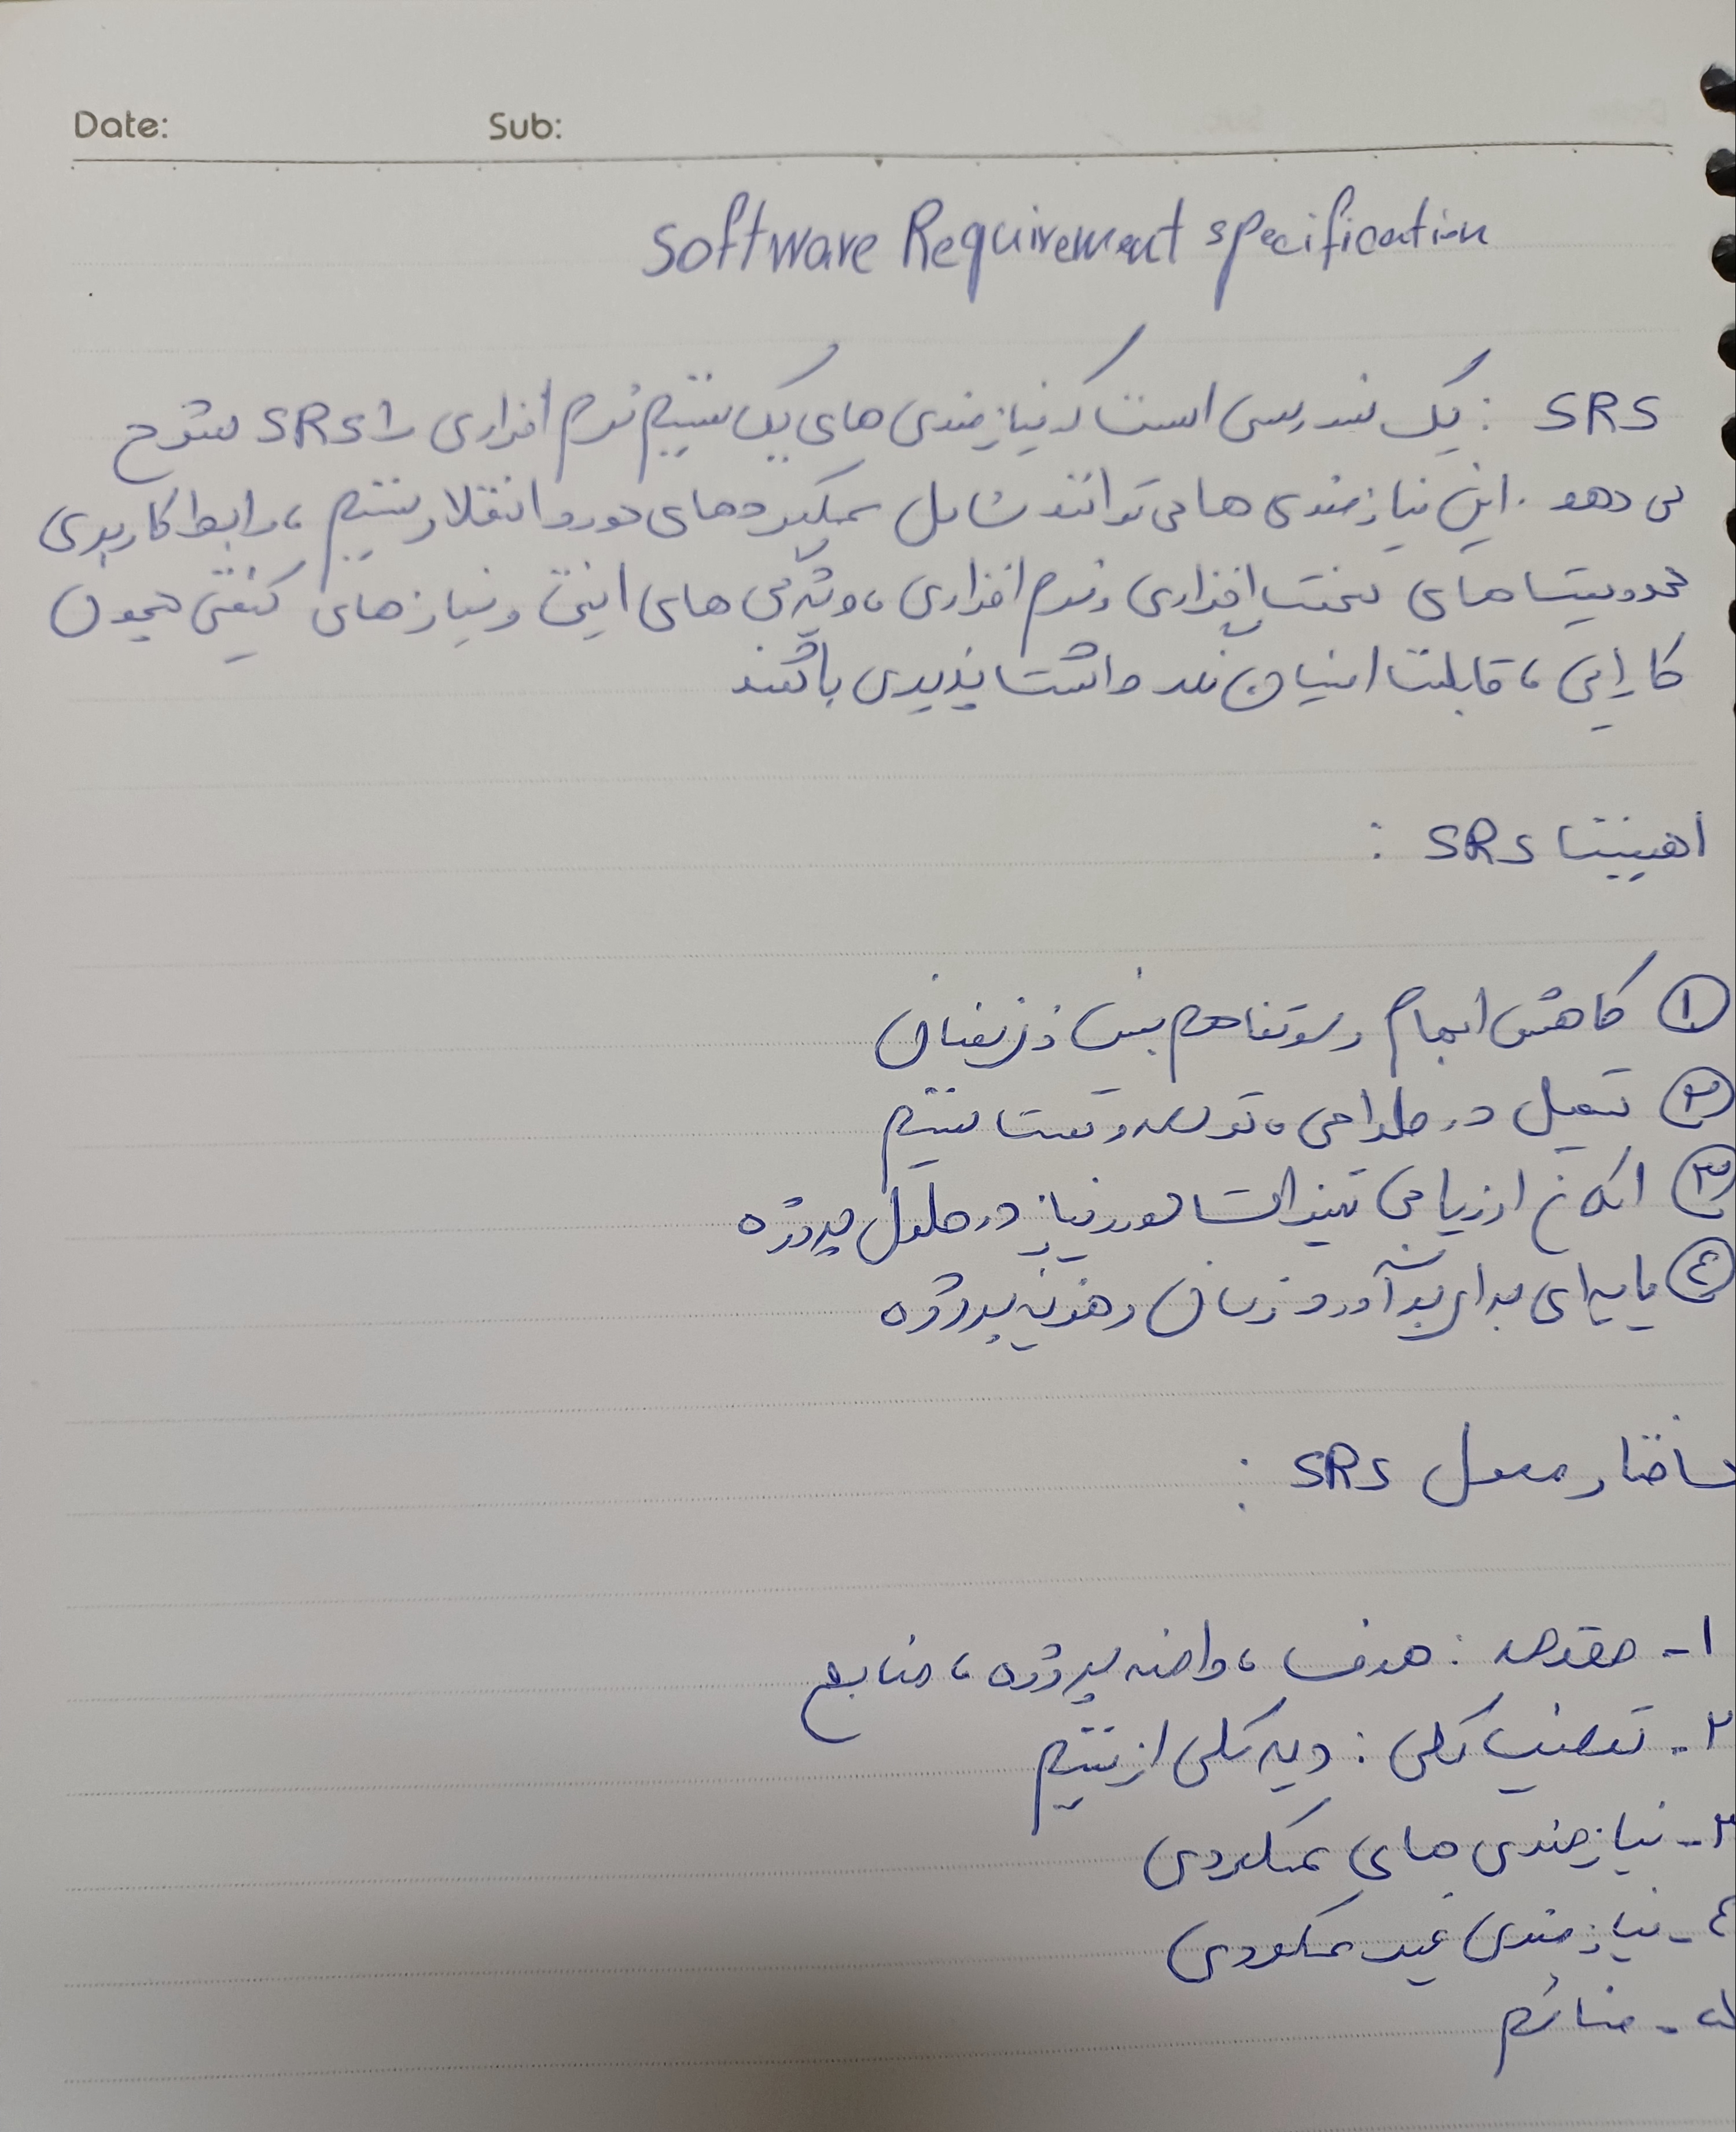 Date: Sub:
Software Requirement specification
SRS : یک سند رسمی است که نیازمندی های یک سیستم نرم افزاری را SRS شرح
می دهد . این نیازمندی ها می توانند شامل عملکردهای مورد انتظار سیستم ، رابط کاربری
محدودیت های سخت افزاری و نرم افزاری ، ویژگی های امنیتی و نیازهای کیفی همچون
کارایی ، قابلیت اطمینان و پذیری باشند
اهمیت SRS :
① کاهش ابهام و سوتفاهم بین ذینفعان
② تسهیل در طراحی ، توسعه و تست سیستم
③ امکان ارزیابی تغییرات مورد نیاز در طول پروژه
④ پایه ای برای برآورد زمان و هزینه پروژه
ساختار معمول SRS :
۱- مقدمه : هدف ، دامنه پروژه ، منابع
۲- توصیف کلی : دید کلی از سیستم
۳- نیازمندی های عملکردی
٤- نیازمندی غیر عملکردی
۵- ضمائم